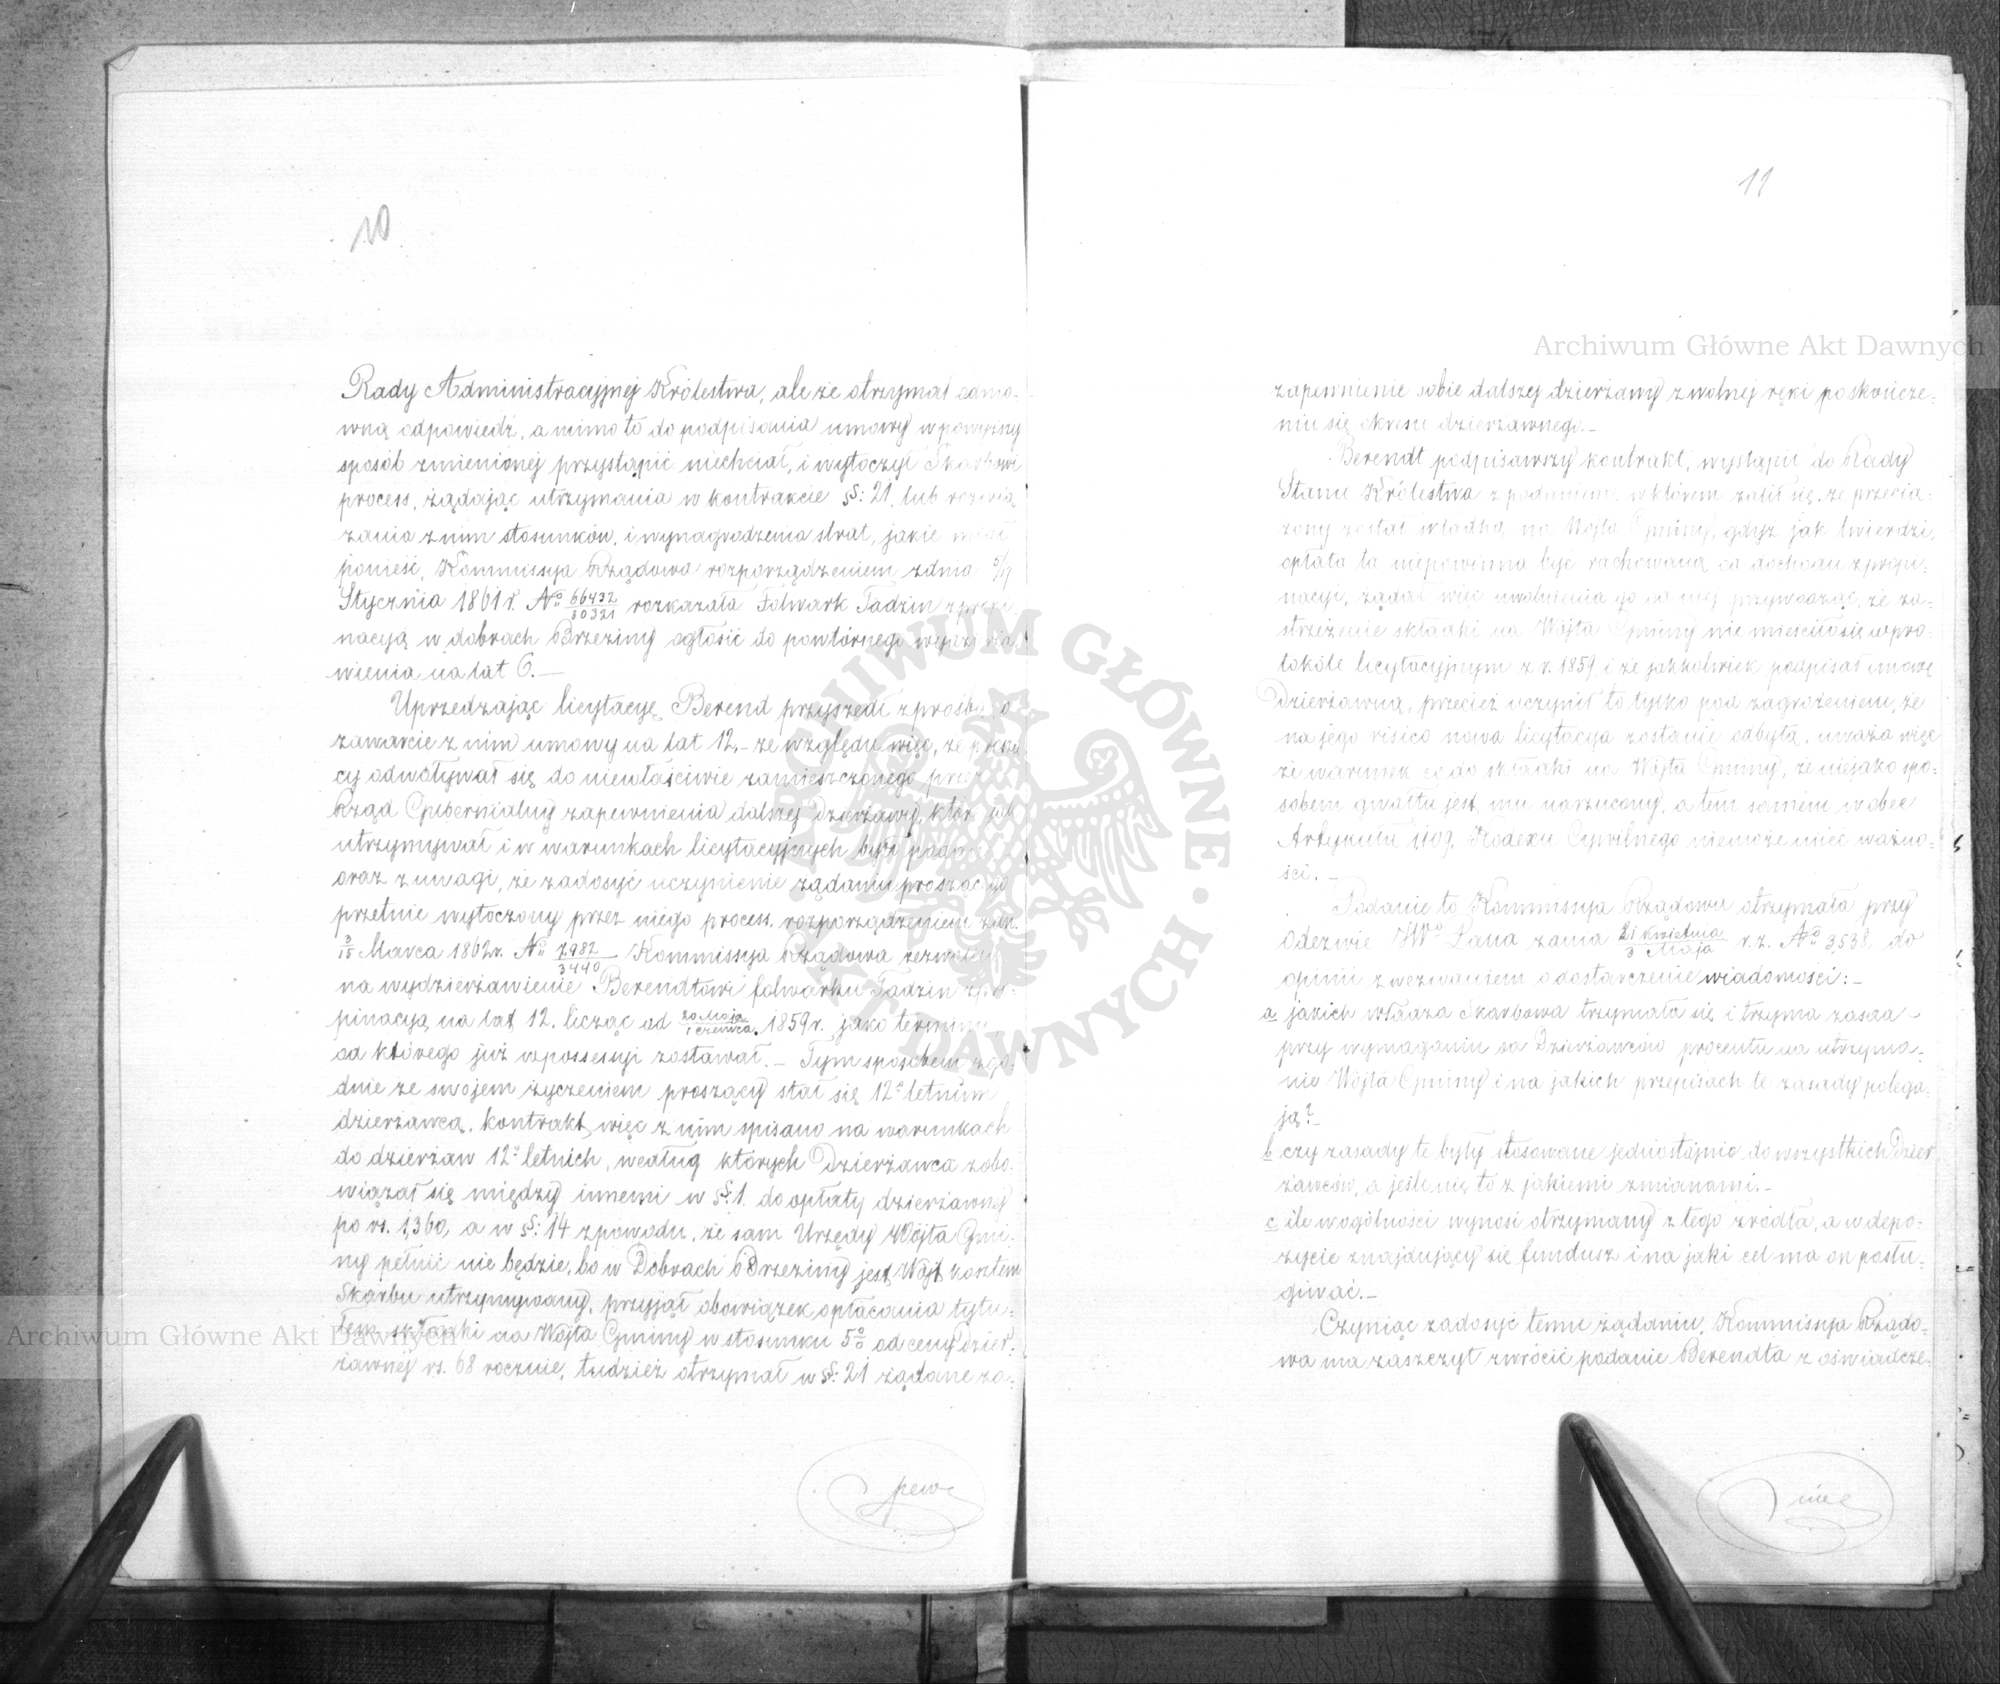 10
Rady Administracyjnej Królestwa, ale że otrzymał odmo-
wną odpowiedź, a mimo to do podpisania umowy w powyższy
sposób zmienionej przystąpić niechciał, i wytoczył Skarbowi
process, żądając utrzymania w kontrakcie §: 21, lub rozwią
zania z nim stosunków, i wynagrodzenia strat, jakie miał
ponieść, Kommissya Rządowa rozporządzeniem z dnia
Stycznia 1861 r. No 66432/30321 rozkazała Folwark Tadzin z propi
nacyą w dobrach Brzeziny ogłosić do powtórnego wydzierża
wienia na lat 6.—
Uprzedzając licytacyę Berend przyszedł z prośbą o
zawarcie z nim umowy na lat 12,– ze względu więc, że proszą
cy odwoływał się do niewłaściwie zamieszczonego przez
Rząd Gubernialny zapewnienia dalszej dzierżawy, które
utrzymywał i w warunkach licytacyjnych było
oraz z uwagi, że zadosyć uczynienie żądaniu proszącego
przetnie wytoczony przez niego process, rozporządzeniem z dn.
3/15 Marca 1862 r. No 2982/3440 Kommissya Rządowa zezwoliła
na wydzierżawienie Berendtowi folwarku Tadzin z pro-
pinacyą na lat 12. licząc od 20 Maja/1 Czerwca 1859 r. jako terminu,
od którego już w possessyi zostawał.— Tym sposobem zgo-
dnie ze swojem życzeniem proszący stał się 12o letnim
dzierżawcą, kontrakt więc z nim spisano na warunkach
do dzierżaw 12o letnich, według których Dzierżawca zobo-
wiązał się między innemi w §: 1. do opłaty dzierżawnej
po rs. 1,360, a w §: 14 z powodu, że sam Urzędu Wójta Gmi-
ny pełnić nie będzie, bo w Dobrach Brzeziny jest Wójt kosztem
Skarbu utrzymywany, przyjął obowiązek opłacania tytu-
łem składki na Wójta Gminy w stosunku 5% od ceny dzier-
żawnej rs. 68 rocznie, tudzież otrzymał w §: 21 żądane za-
pew
11
zapewnienie sobie dalszej dzierżawy z wolnej ręki po skończe-
niu się okresu dzierżawnego.—
Berendt podpisawszy kontrakt, wystąpił do Rady
Stanu Królestwa z podaniem, w którem żalił się, że przecią-
żony został składką na Wójta Gminy, gdyż jak twierdzi,
opłata ta niepowinna być rachowaną od dochodu z propi-
nacyi, żądał więc uwolnienia go od niej przywodząc, że za-
strzeżenie składki na Wójta Gminy nie mieściło się w pro-
tokóle licytacyjnym z r. 1859 i że jakkolwiek podpisał umowę
Dzierżawną, przecież uczynił to tylko pod zagrożeniem, że
na jego risico nowa licytacya zostanie odbytą, uważa więc
że warunek co do składki na Wójta Gminy, że niejako spo-
sobem gwałtu jest mu narzucony, a tem samem wobec
Artykułu 1109. Kodexu Cywilnego niemoże mieć ważno-
ści.—
Podanie to Kommissya Rządowa otrzymała przy
Odezwie JWo Pana z dnia 21 Kwietnia/3 Maja r. z. No 3538 do
opinii z wezwaniem o dostarczenie wiadomości:—
a jakich władza Skarbowa trzymała się i trzyma zasad
przy wymaganiu od Dzierżawców procentu na utrzyma-
nie Wójta Gminy i na jakich przepisach te zasady polega-
ją?—
b czy zasady te były stosowane jednostajnie do wszystkich Dzier
żawców, a jeśli nie to z jakiemi zmianami.—
c ile wogólności wynosi otrzymany z tego źródła, a w depo-
zycie znajdujący się fundusz i na jaki cel ma on posłu-
giwać.—
Czyniąc zadosyć temu żądaniu, Kommissya Rządo-
wa ma zaszczyt zwrócić podanie Berendta z oświadcze-
nie
Archiwum Główne Akt Dawnych
Archiwum Główne Akt Dawnych
ARCHIWUM GŁÓWNE AKT DAWNYCH